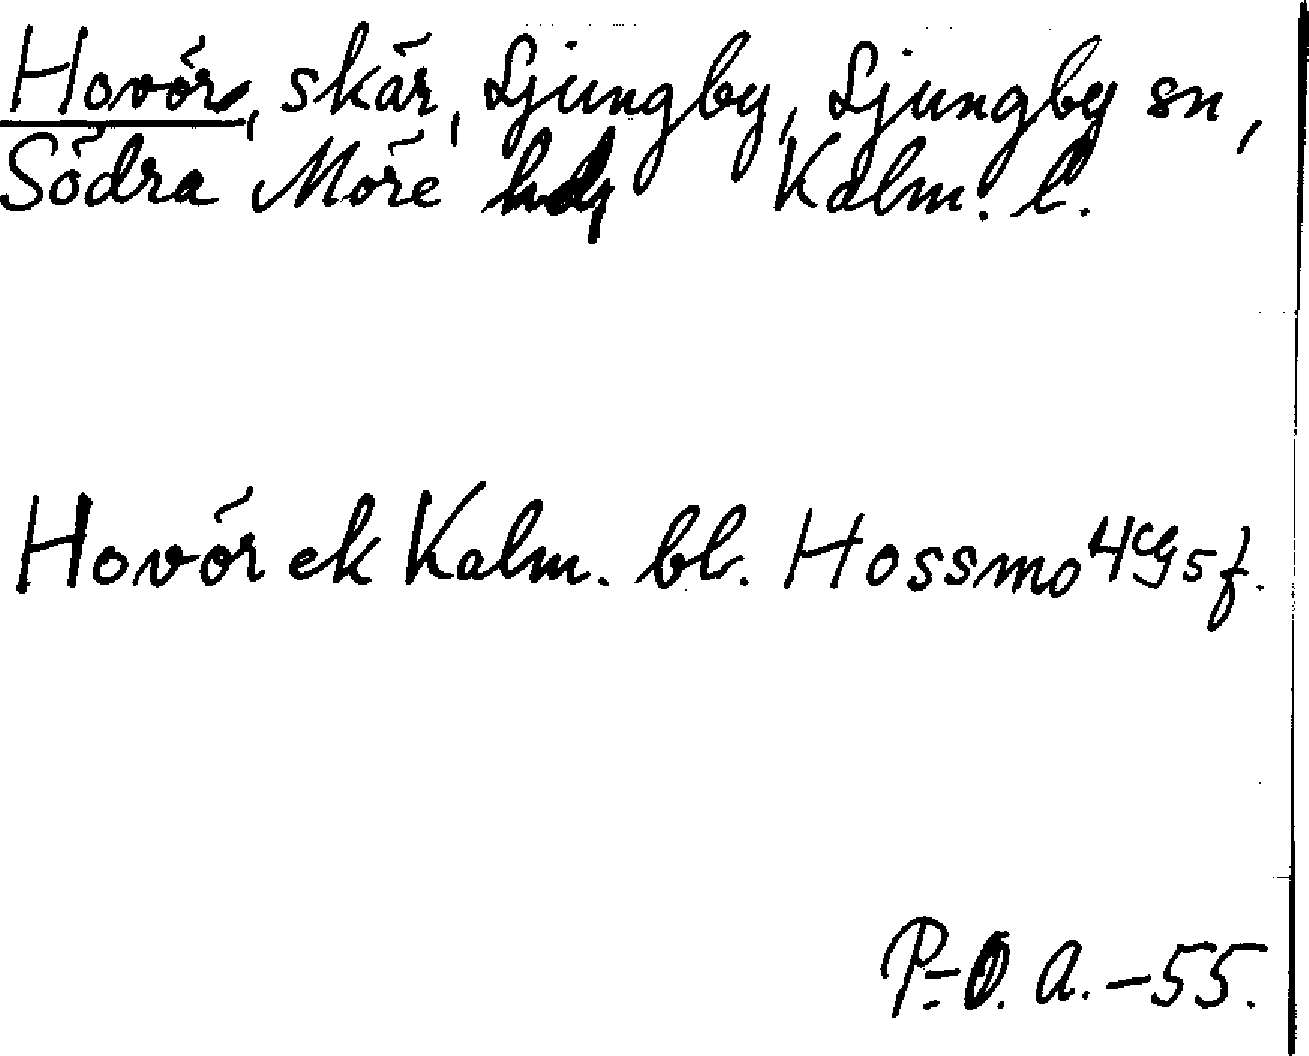 Hovör, skär, Ljungby, Ljungby sn,
Södra Möre hdr Kalm. l.
Hovör ek Kalm. bl. Hossmo 4G5f.
P-O. A. -55.